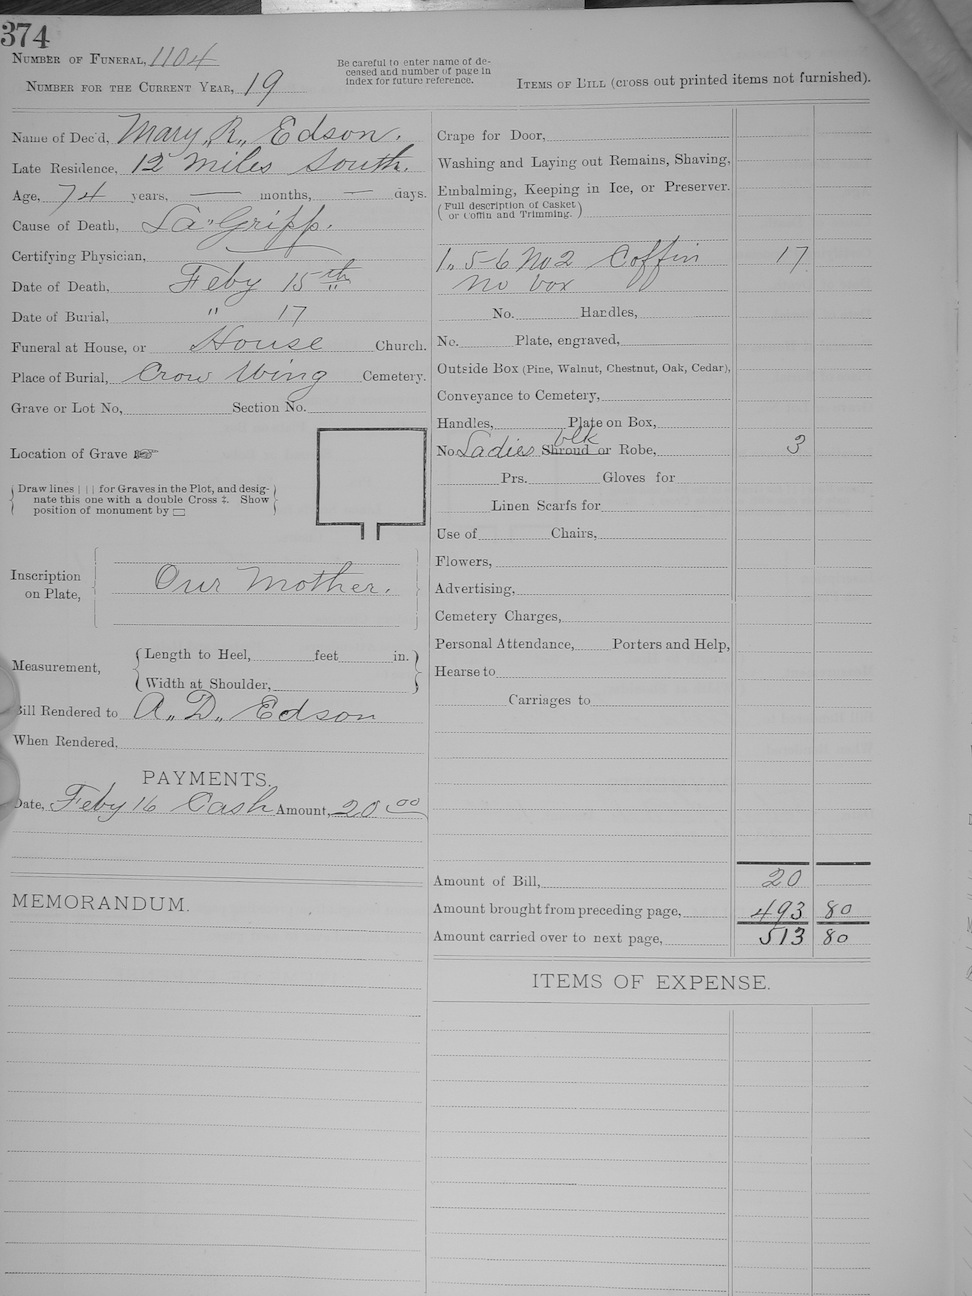 374
NUMBER OF FUNERAL, 1104
NUMBER FOR THE CURRENT YEAR, 19
Be careful to enter name of de-
ceased and number of page in
index for future reference.
ITEMS OF BILL (cross out printed items not furnished).
Name of Dec'd, Mary „R„ Edson.
Late Residence, 12 miles South.
Age, 74 years, — months, — days.
Cause of Death, La "Gripp.
Certifying Physician,
Date of Death, Feby 15th
Date of Burial, " 17
Funeral at House, or House Church.
Place of Burial, Crow Wing Cemetery.
Grave or Lot No, Section No.
Location of Grave ☞
Draw lines | | | for Graves in the Plot, and desig-
nate this one with a double Cross ‡. Show
position of monument by ▭
Inscription
on Plate,
Our Mother.
Measurement,
Length to Heel, feet in.
Width at Shoulder,
Bill Rendered to A„ D„ Edson
When Rendered,
PAYMENTS.
Date, Feby 16 Cash Amount, 20.00
MEMORANDUM.
Crape for Door,
Washing and Laying out Remains, Shaving,
Embalming, Keeping in Ice, or Preserver.
(Full description of Casket
or Coffin and Trimming.)
1„ 5-6 No 2 Coffin 17
no box
No. Handles,
No. Plate, engraved,
Outside Box (Pine, Walnut, Chestnut, Oak, Cedar),
Conveyance to Cemetery,
Handles, Plate on Box,
blk
No Ladies Shroud or Robe, 3
Prs. Gloves for
Linen Scarfs for
Use of Chairs,
Flowers,
Advertising,
Cemetery Charges,
Personal Attendance, Porters and Help,
Hearse to
Carriages to
Amount of Bill, 20
Amount brought from preceding page, 493 80
Amount carried over to next page, 513 80
ITEMS OF EXPENSE.